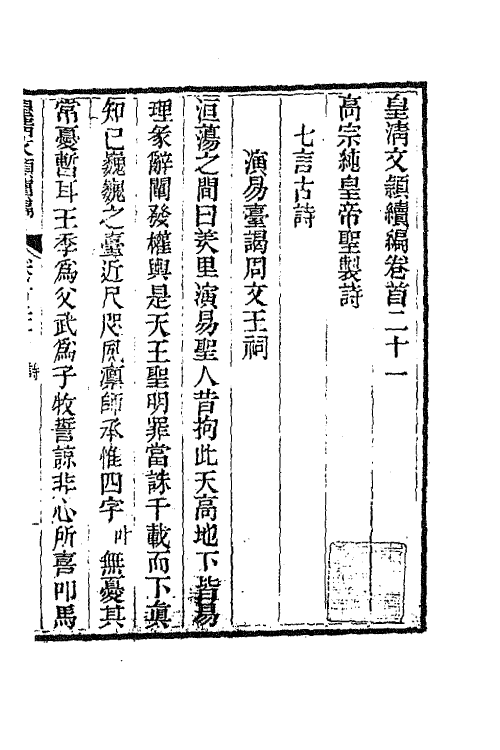 皇清文穎續編卷首二十一
高宗純皇帝聖製詩
七言古詩
演易臺謁周文王祠
洹蕩之間曰羑里演易聖人昔拘此天高地下皆易
理彖辭闡發權輿是天王聖明罪當誅千載而下真
知己巍巍之臺近尺咫夙凛師承惟四字叶無憂其
常憂暫耳王季為父武為子牧誓諒非心所喜叩馬
皇清文穎續編
詩